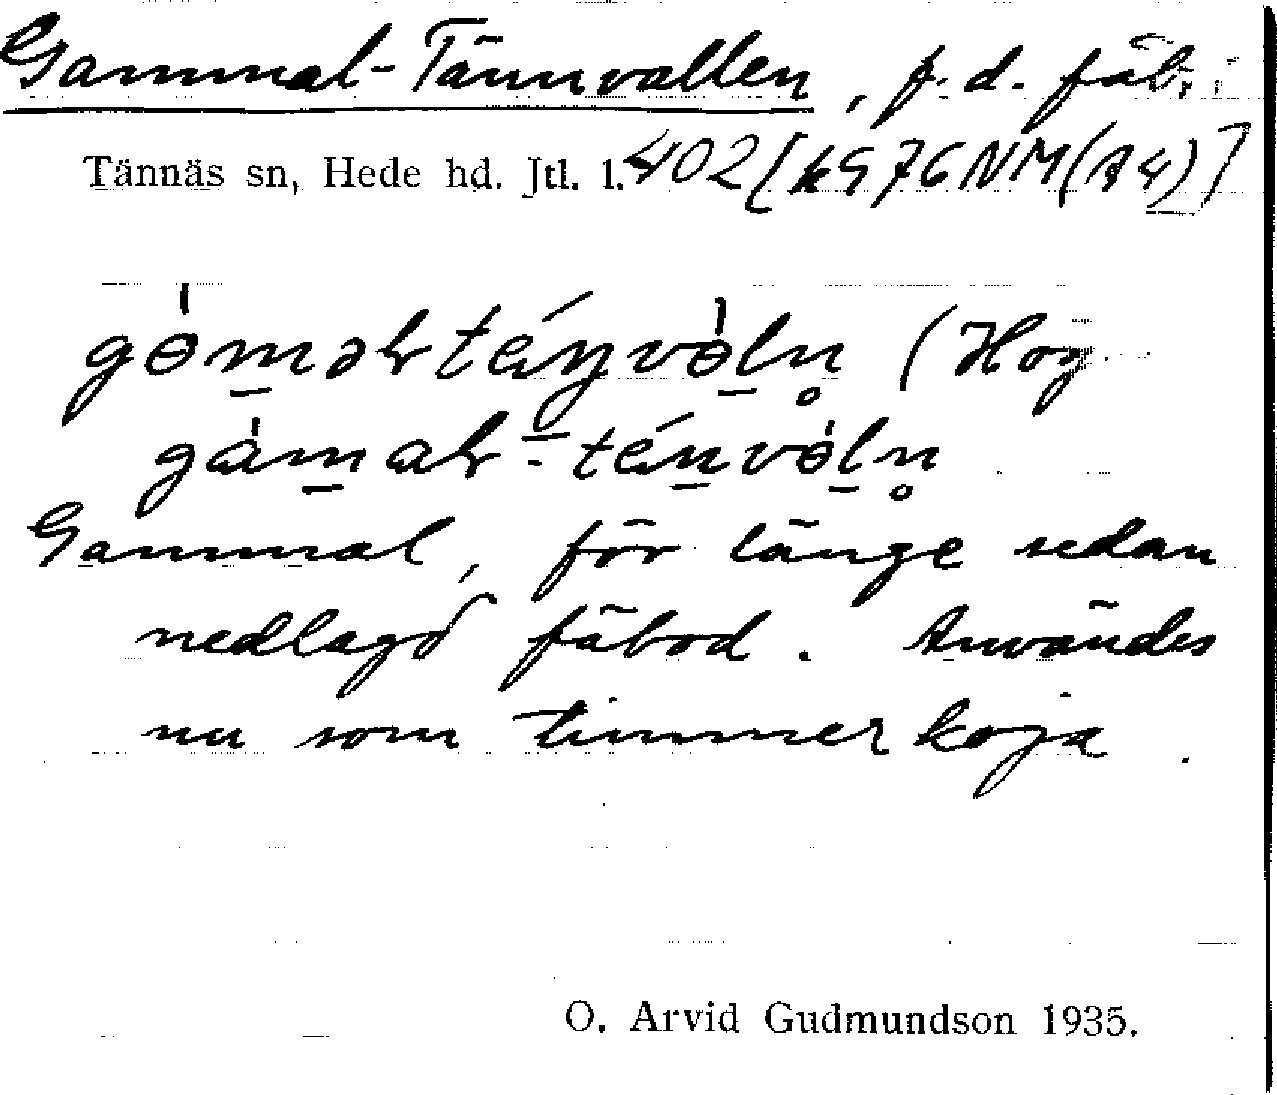 Gammal-Tännvallen, f.d. fäb.
Tännäs sn, Hede hd. Jtl. l. 402 [k976NM(A4)]
gɵ̀m̲əltéŋvɵ̀l̲n̥ (Hog
gàm̲al-tén̲vɵ̀l̲n̥
Gammal, för länge sedan
nedlagd fäbod. Användes
nu som timmerkoja.
O. Arvid Gudmundson 1935.